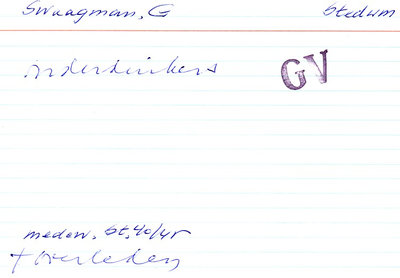 Swaagman, G Stedum
Onderduikers GV
medew. St. 40/45
+ Overleden